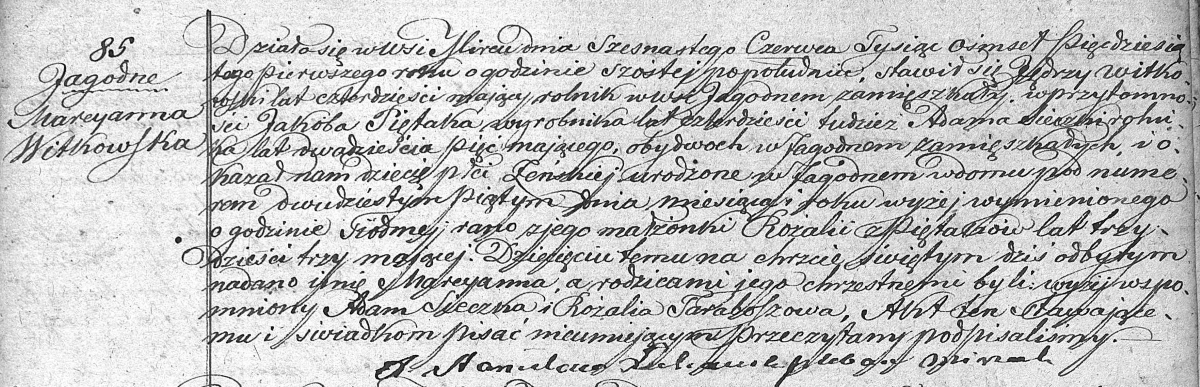 85
Jagodne
Maryanna
Witkowska
Działo się w wsi Mircu dnia Szesnastego Czerwca Tysiąc Ośmset Pięcdziesią
tego pierwszego roku o godzinie szóstej popołudniu, stawił się Jędrzy Witko-
wski lat czterdzieści mający rolnik w wsi Jagodnem zamięszkały. w przytomno-
ści Jakóba Piętaka wyrobnika lat czterdzieści tudzież Adama Sieczki rolni-
ka lat dwadzieścia pięc mającego, obydwoch w Jagodnem zamięszkałych, i o-
kazał nam dziecię płci Żeńskiej urodzone w Jagodnem w domu pod nume-
rem dwudziestym Piątym dnia miesiąca i roku wyżej wymienionego
o godzinie Siódmej rano z jego małżonki Rozalii z Piętaków lat trzy-
dzieści trzy mającej. Dziecięciu temu na chrzcie świętym dziś odbytym
nadano imię Maryanna, a rodzicami jego chrzestnemi byli: wyżej wspo-
mniony Adam Sieczka i Rozalia Faraboszowa, Akt ten stawające-
mu i świadkom pisać nieumiejącym przeczytany podpisaliśmy.
X Stanisław